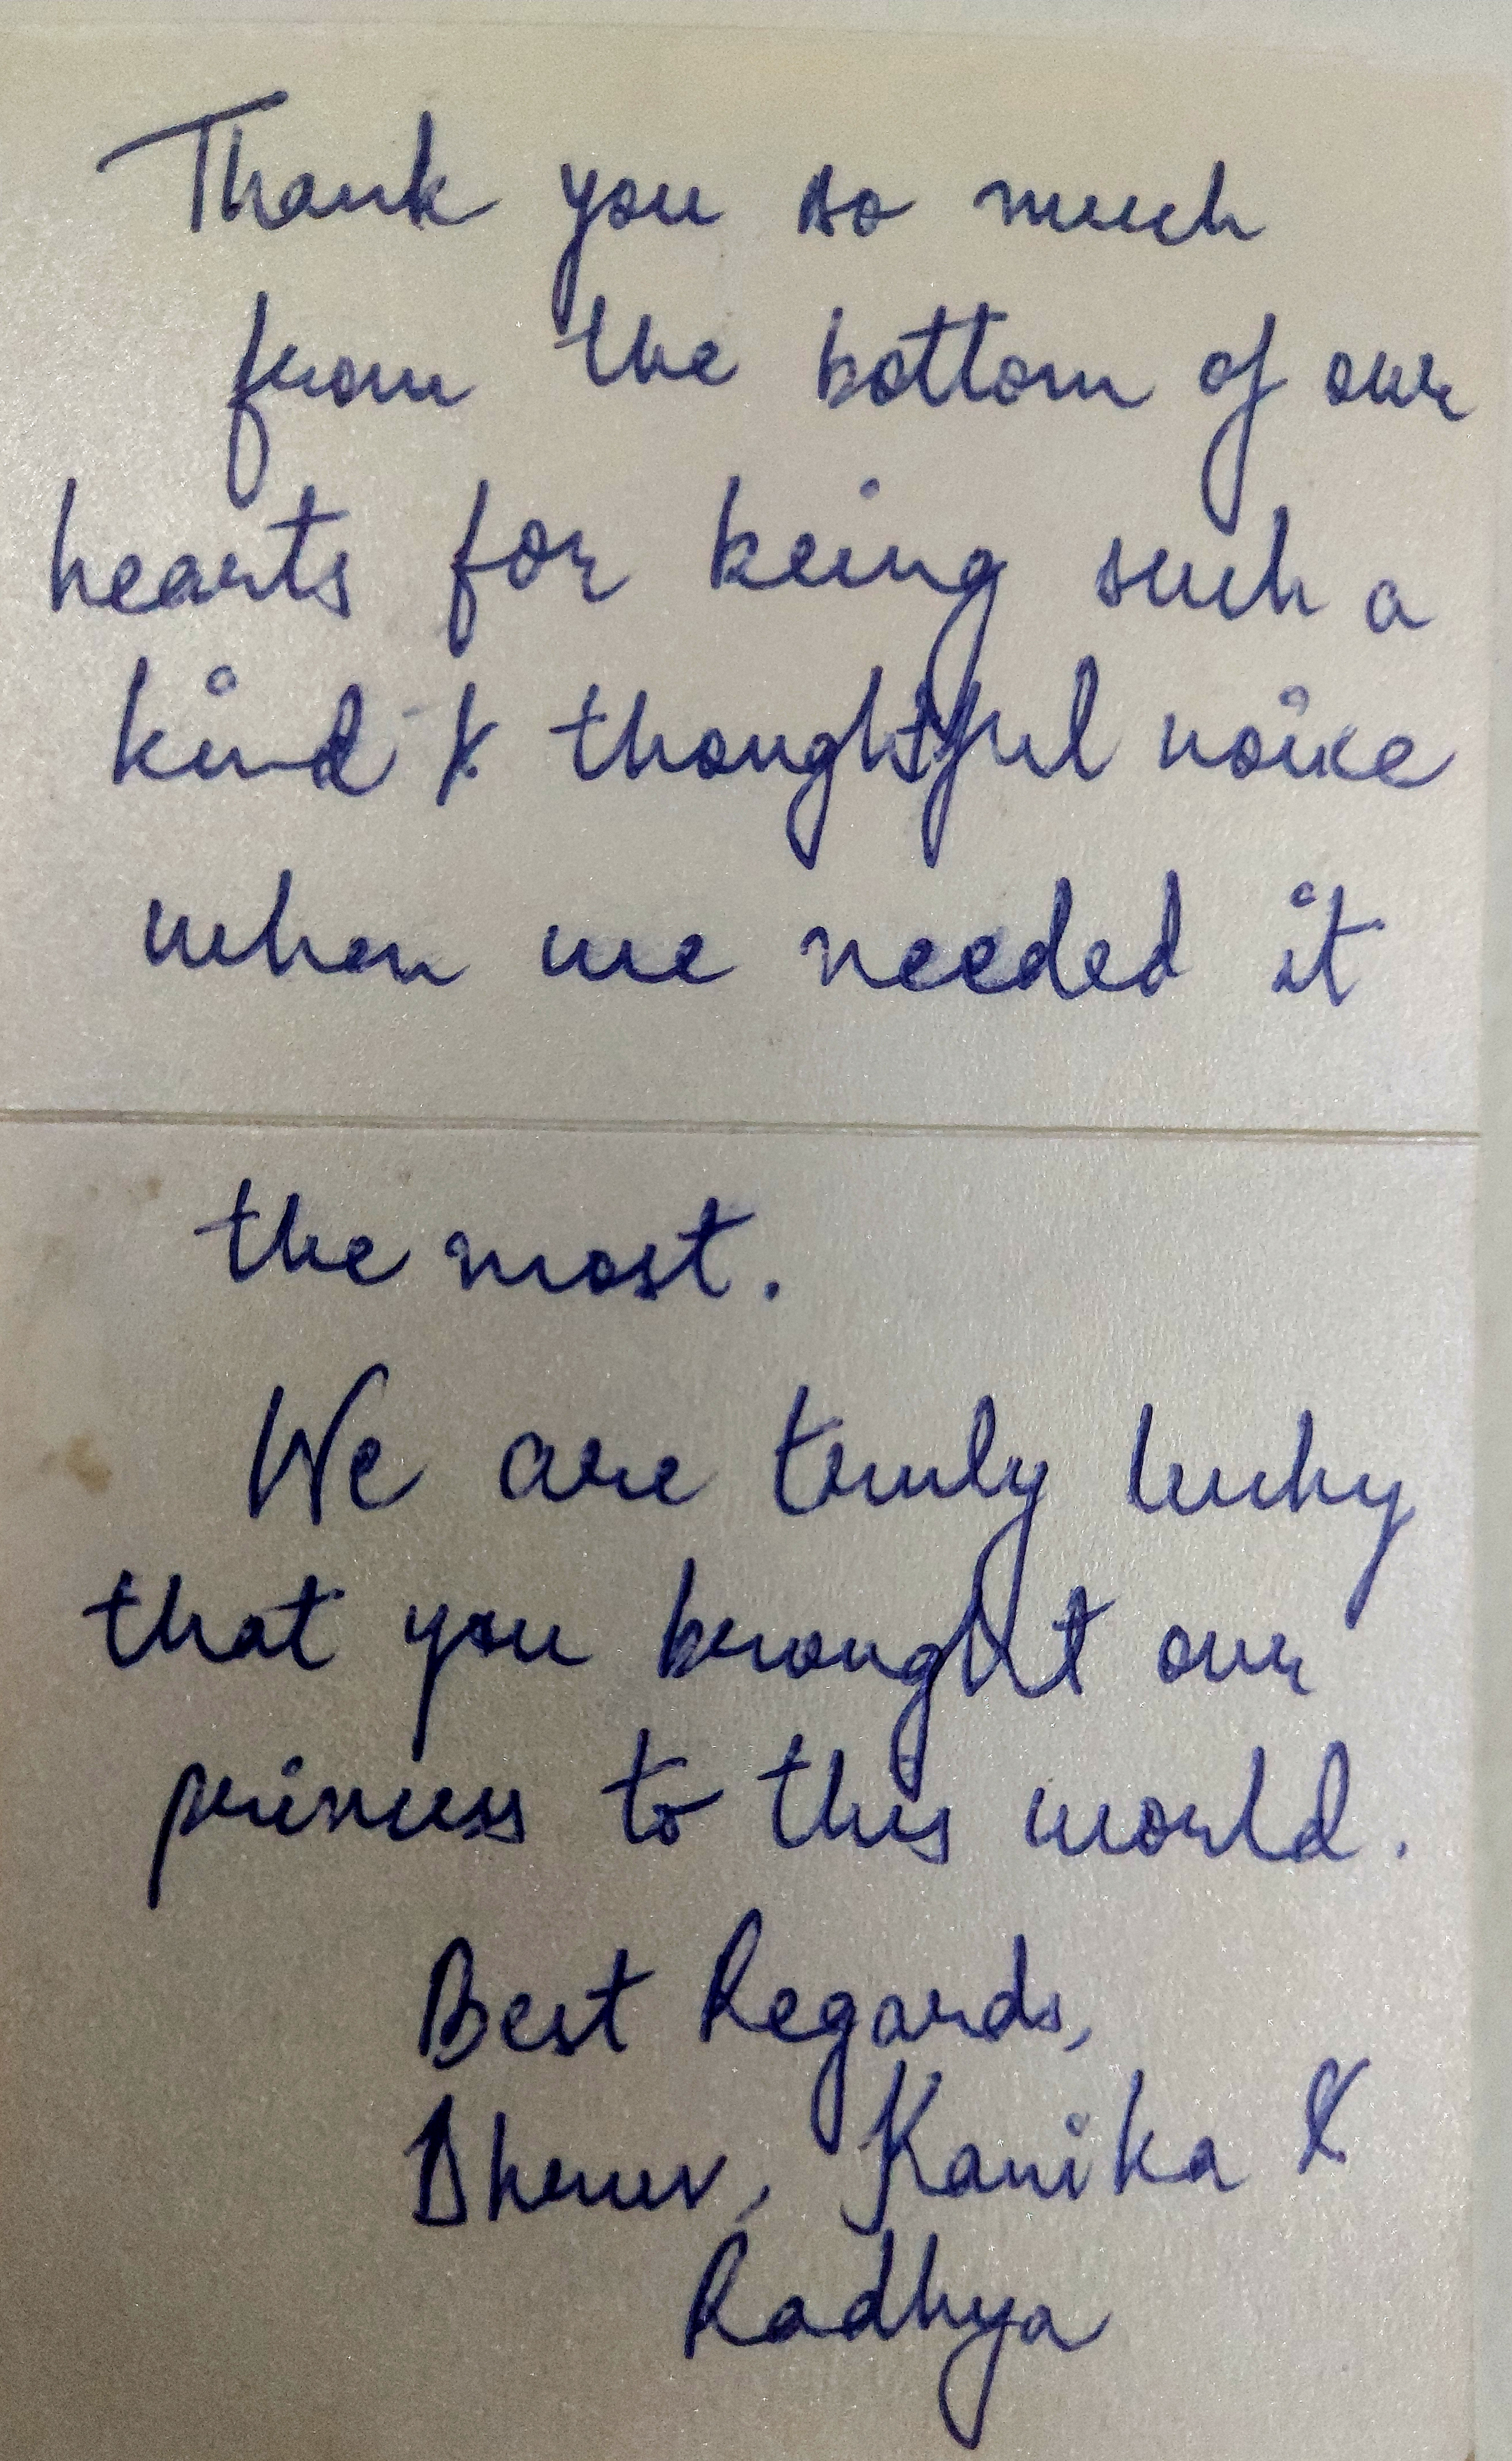 Thank you so much
from the bottom of our
hearts for being such a
kind & thoughtful voice
when we needed it
the most.
We are truly lucky
that you brought our
princess to this world.
Best Regards,
Dhruv, Kanika &
Radhya